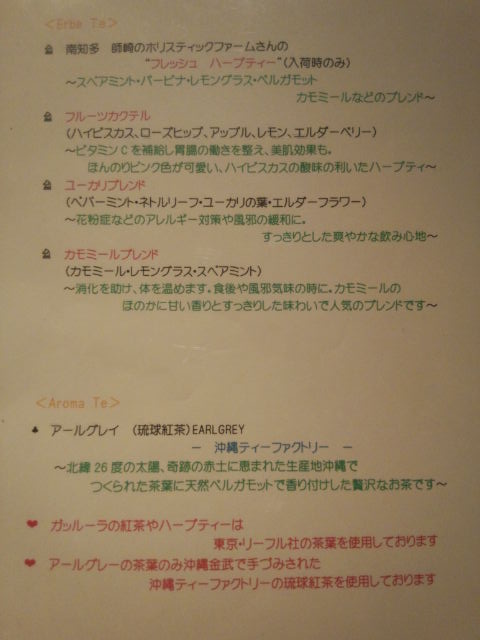 ＜Erbe Te＞
南知多　師崎のホリスティックファームさんの
"フレッシュ　ハーブティー"（入荷時のみ）
～スペアミント・バービナ・レモングラス・ベルガモット
カモミールなどのブレンド～
フルーツカクテル
（ハイビスカス、ローズヒップ、アップル、レモン、エルダーベリー）
～ビタミンCを補給し胃腸の働きを整え、美肌効果も。
ほんのりピンク色が可愛い、ハイビスカスの酸味の利いたハーブティ～
ユーカリブレンド
（ペパーミント・ネトルリーフ・ユーカリの葉・エルダーフラワー）
～花粉症などのアレルギー対策や風邪の緩和に。
すっきりとした爽やかな飲み心地～
カモミールブレンド
（カモミール・レモングラス・スペアミント）
～消化を助け、体を温めます。食後や風邪気味の時に。カモミールの
ほのかに甘い香りとすっきりした味わいで人気のブレンドです～
＜Aroma Te＞
♠ アールグレイ　（琉球紅茶）EARLGREY
― 沖縄ティーファクトリー ―
～北緯26度の太陽、奇跡の赤土に恵まれた生産地沖縄で
つくられた茶葉に天然ベルガモットで香り付けした贅沢なお茶です～
♥ ガッルーラの紅茶やハーブティーは
東京・リーフル社の茶葉を使用しております
♥ アールグレーの茶葉のみ沖縄金武で手づみされた
沖縄ティーファクトリーの琉球紅茶を使用しております